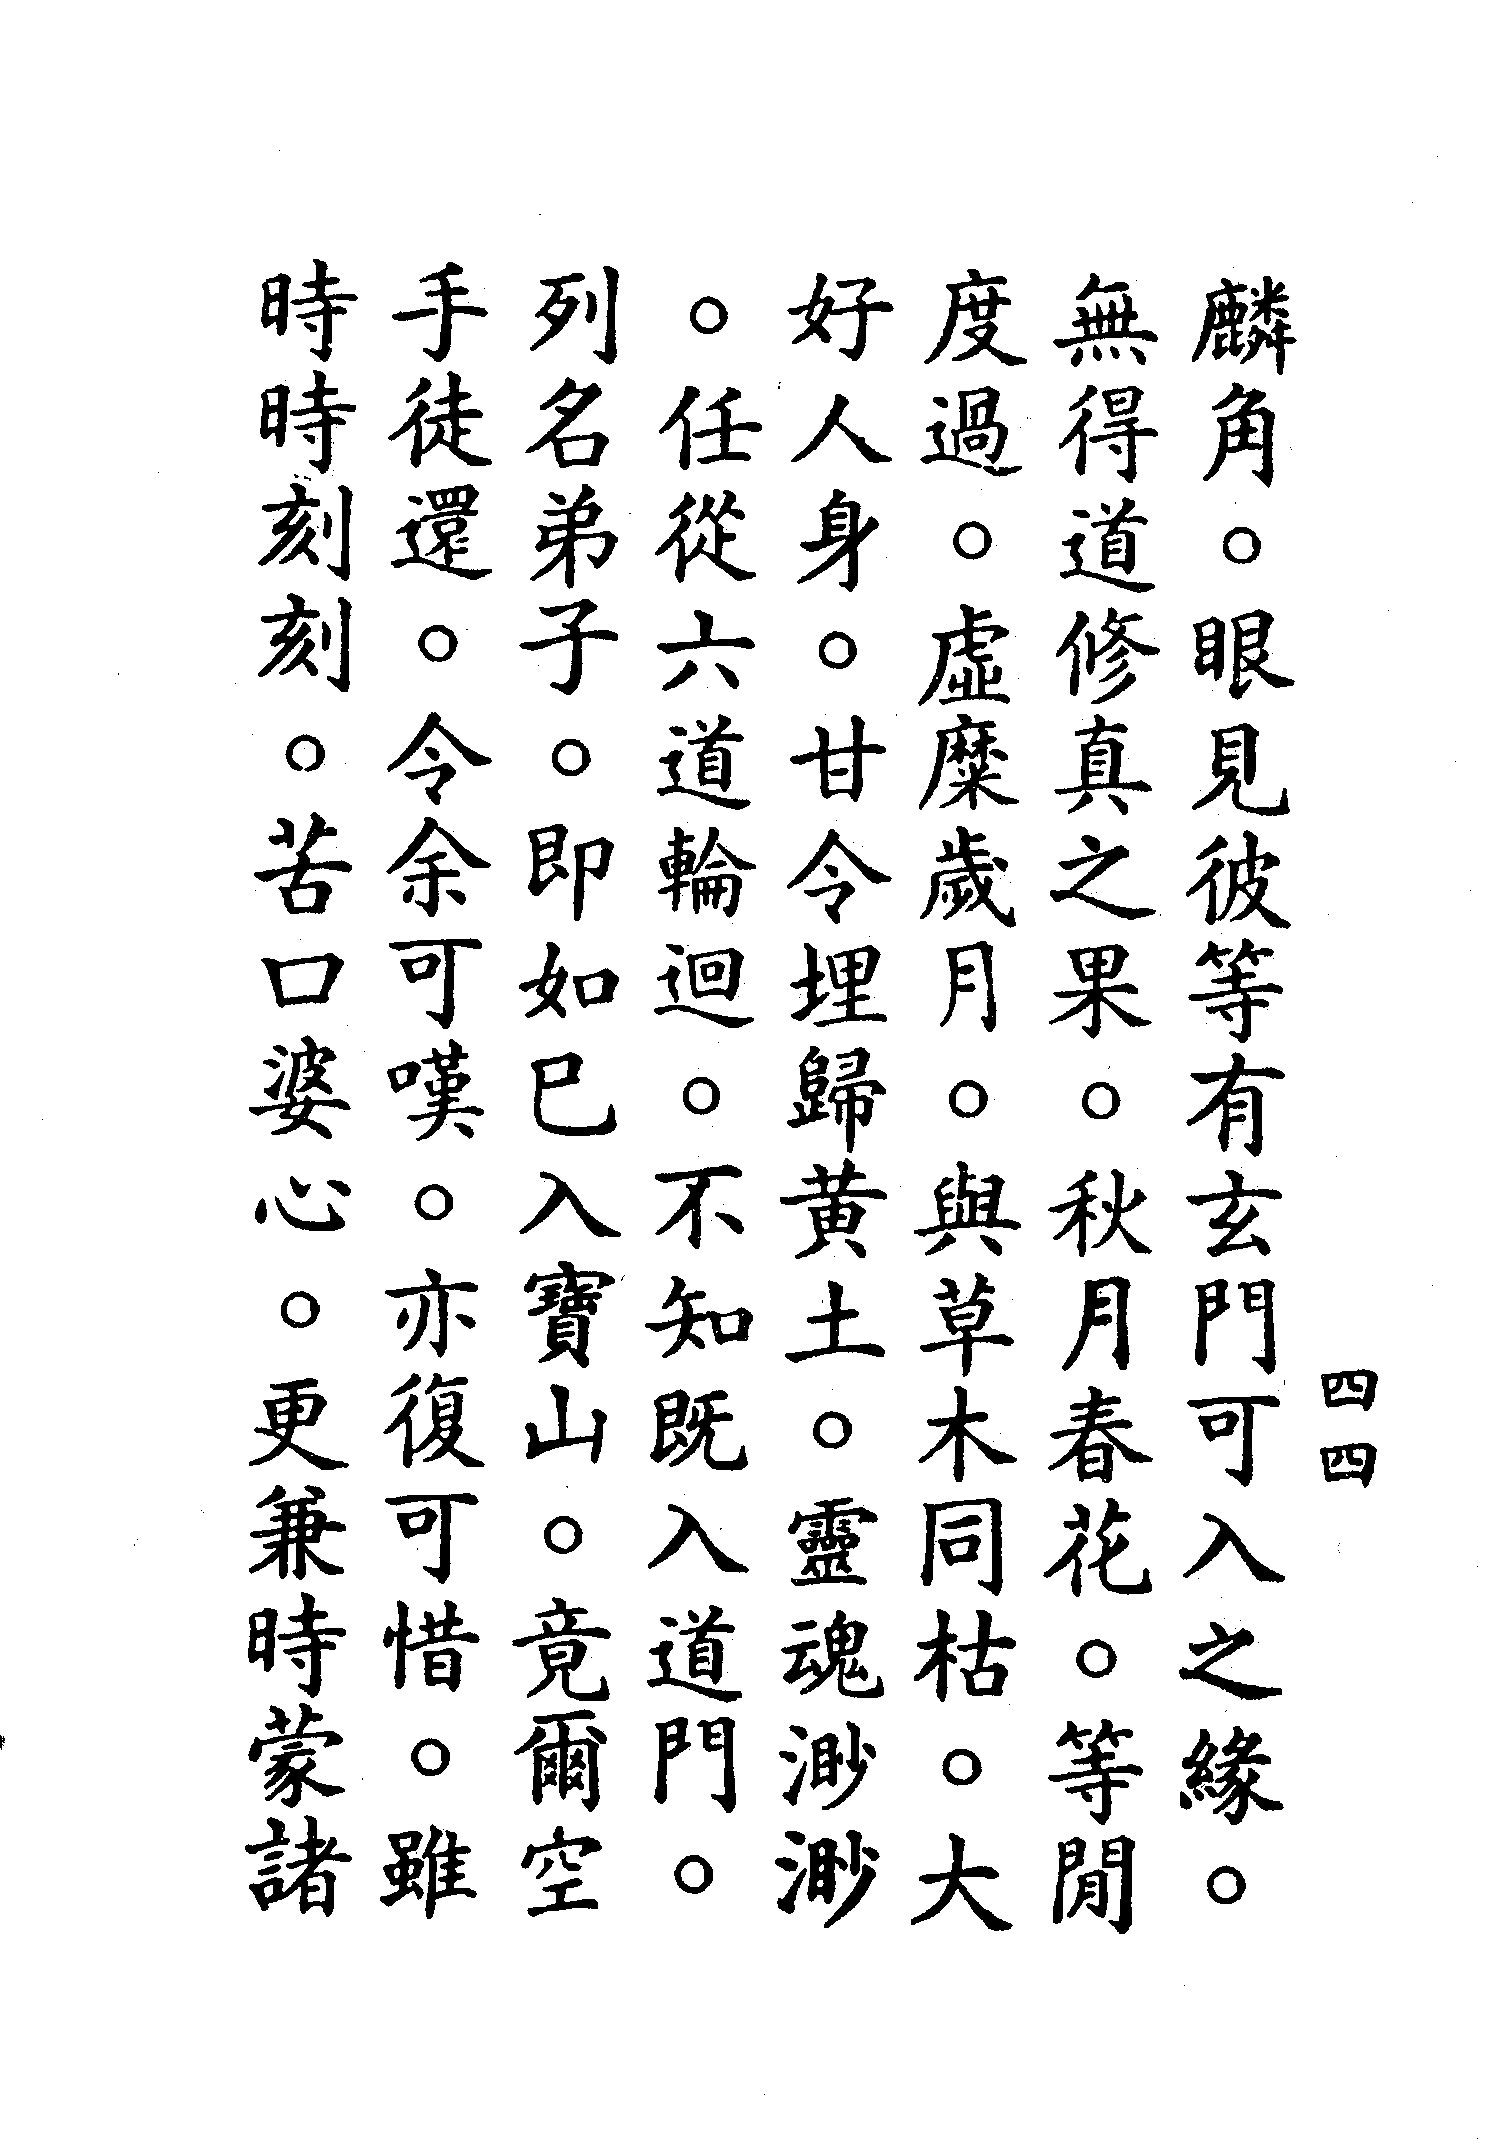 四四
麟角。眼見彼等有玄門可入之緣。
無得道修真之果。秋月春花。等閒
度過。虛糜歲月。與草木同枯。大
好人身。甘令埋歸黄土。靈魂渺渺
。任從六道輪迴。不知既入道門。
列名弟子。即如已入寶山。竟爾空
手徒還。令余可嘆。亦復可惜。雖
時時刻刻。苦口婆心。更兼時蒙諸